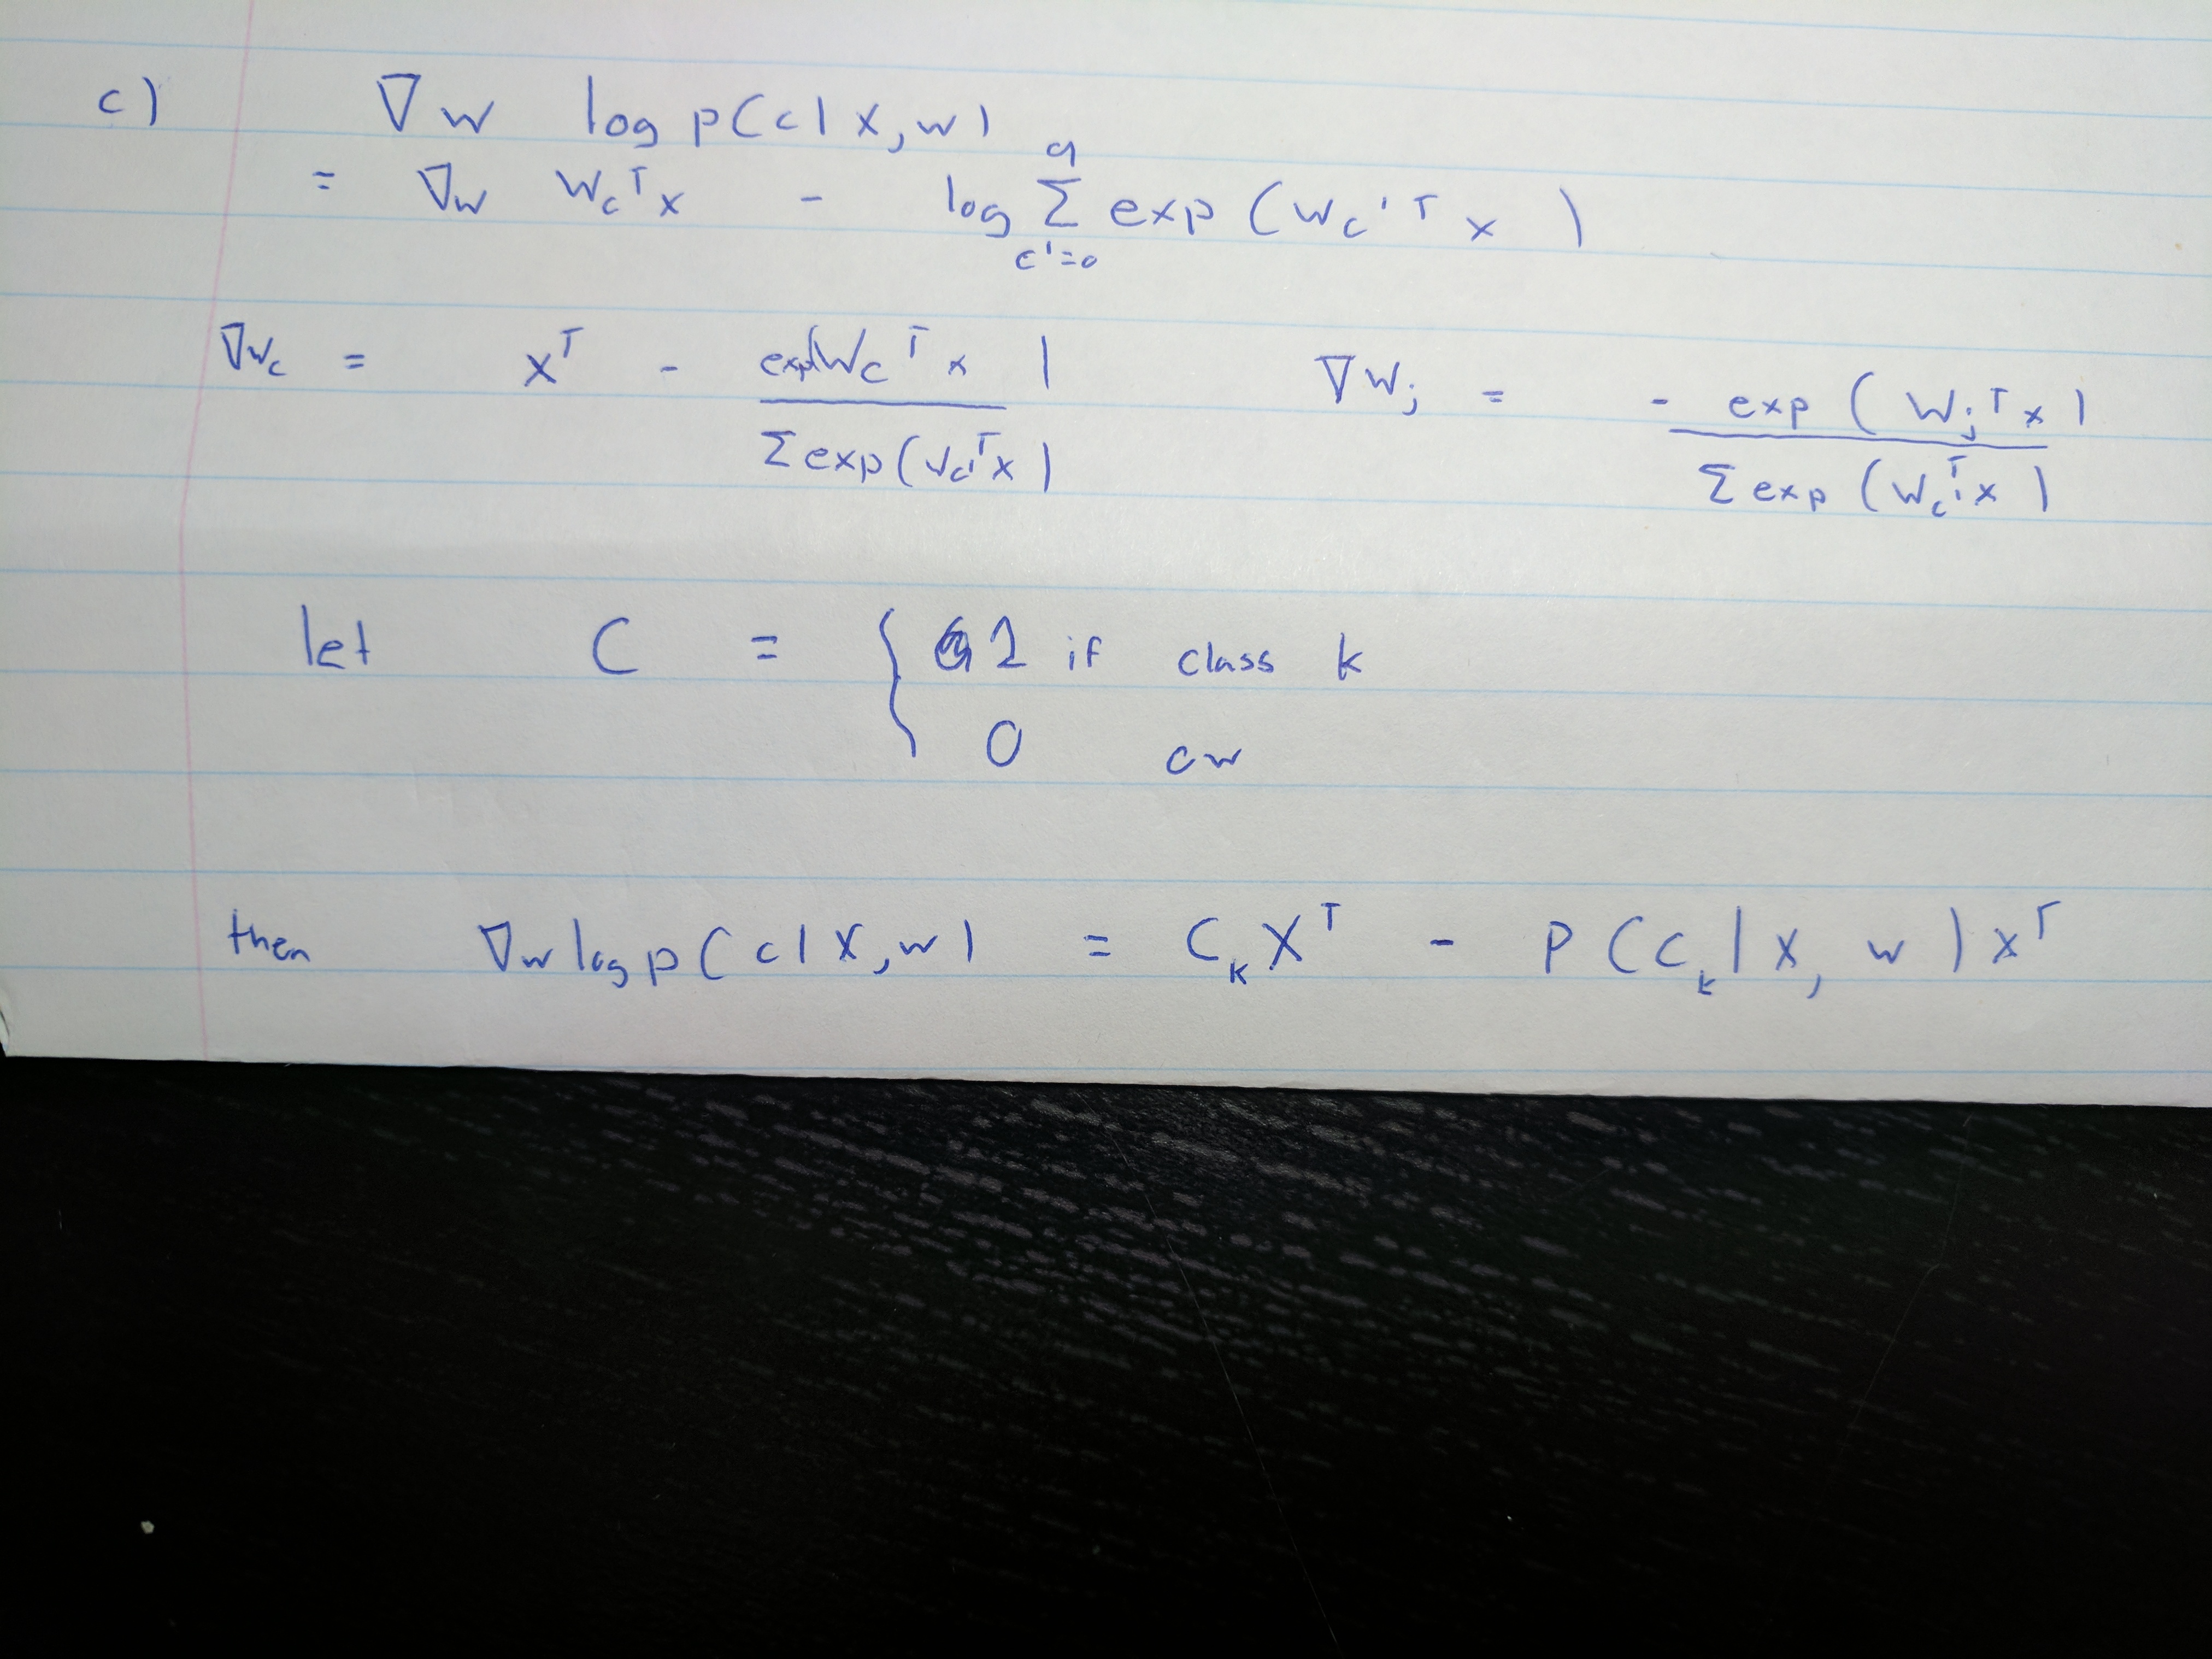 c) ∇w log p(c|x,w)
= ∇w Wcᵀx - log Σ_{c'=0}^{9} exp(Wc'ᵀx)
∇Wc = xᵀ - exp(Wcᵀx) / Σ exp(Wc'ᵀx)    ∇Wj = - exp(Wjᵀx) / Σ exp(Wc'ᵀx)
let C = { 1 if class k
0 ow
then ∇w log p(c|x,w) = C_k Xᵀ - P(C_k|x,w)xᵀ